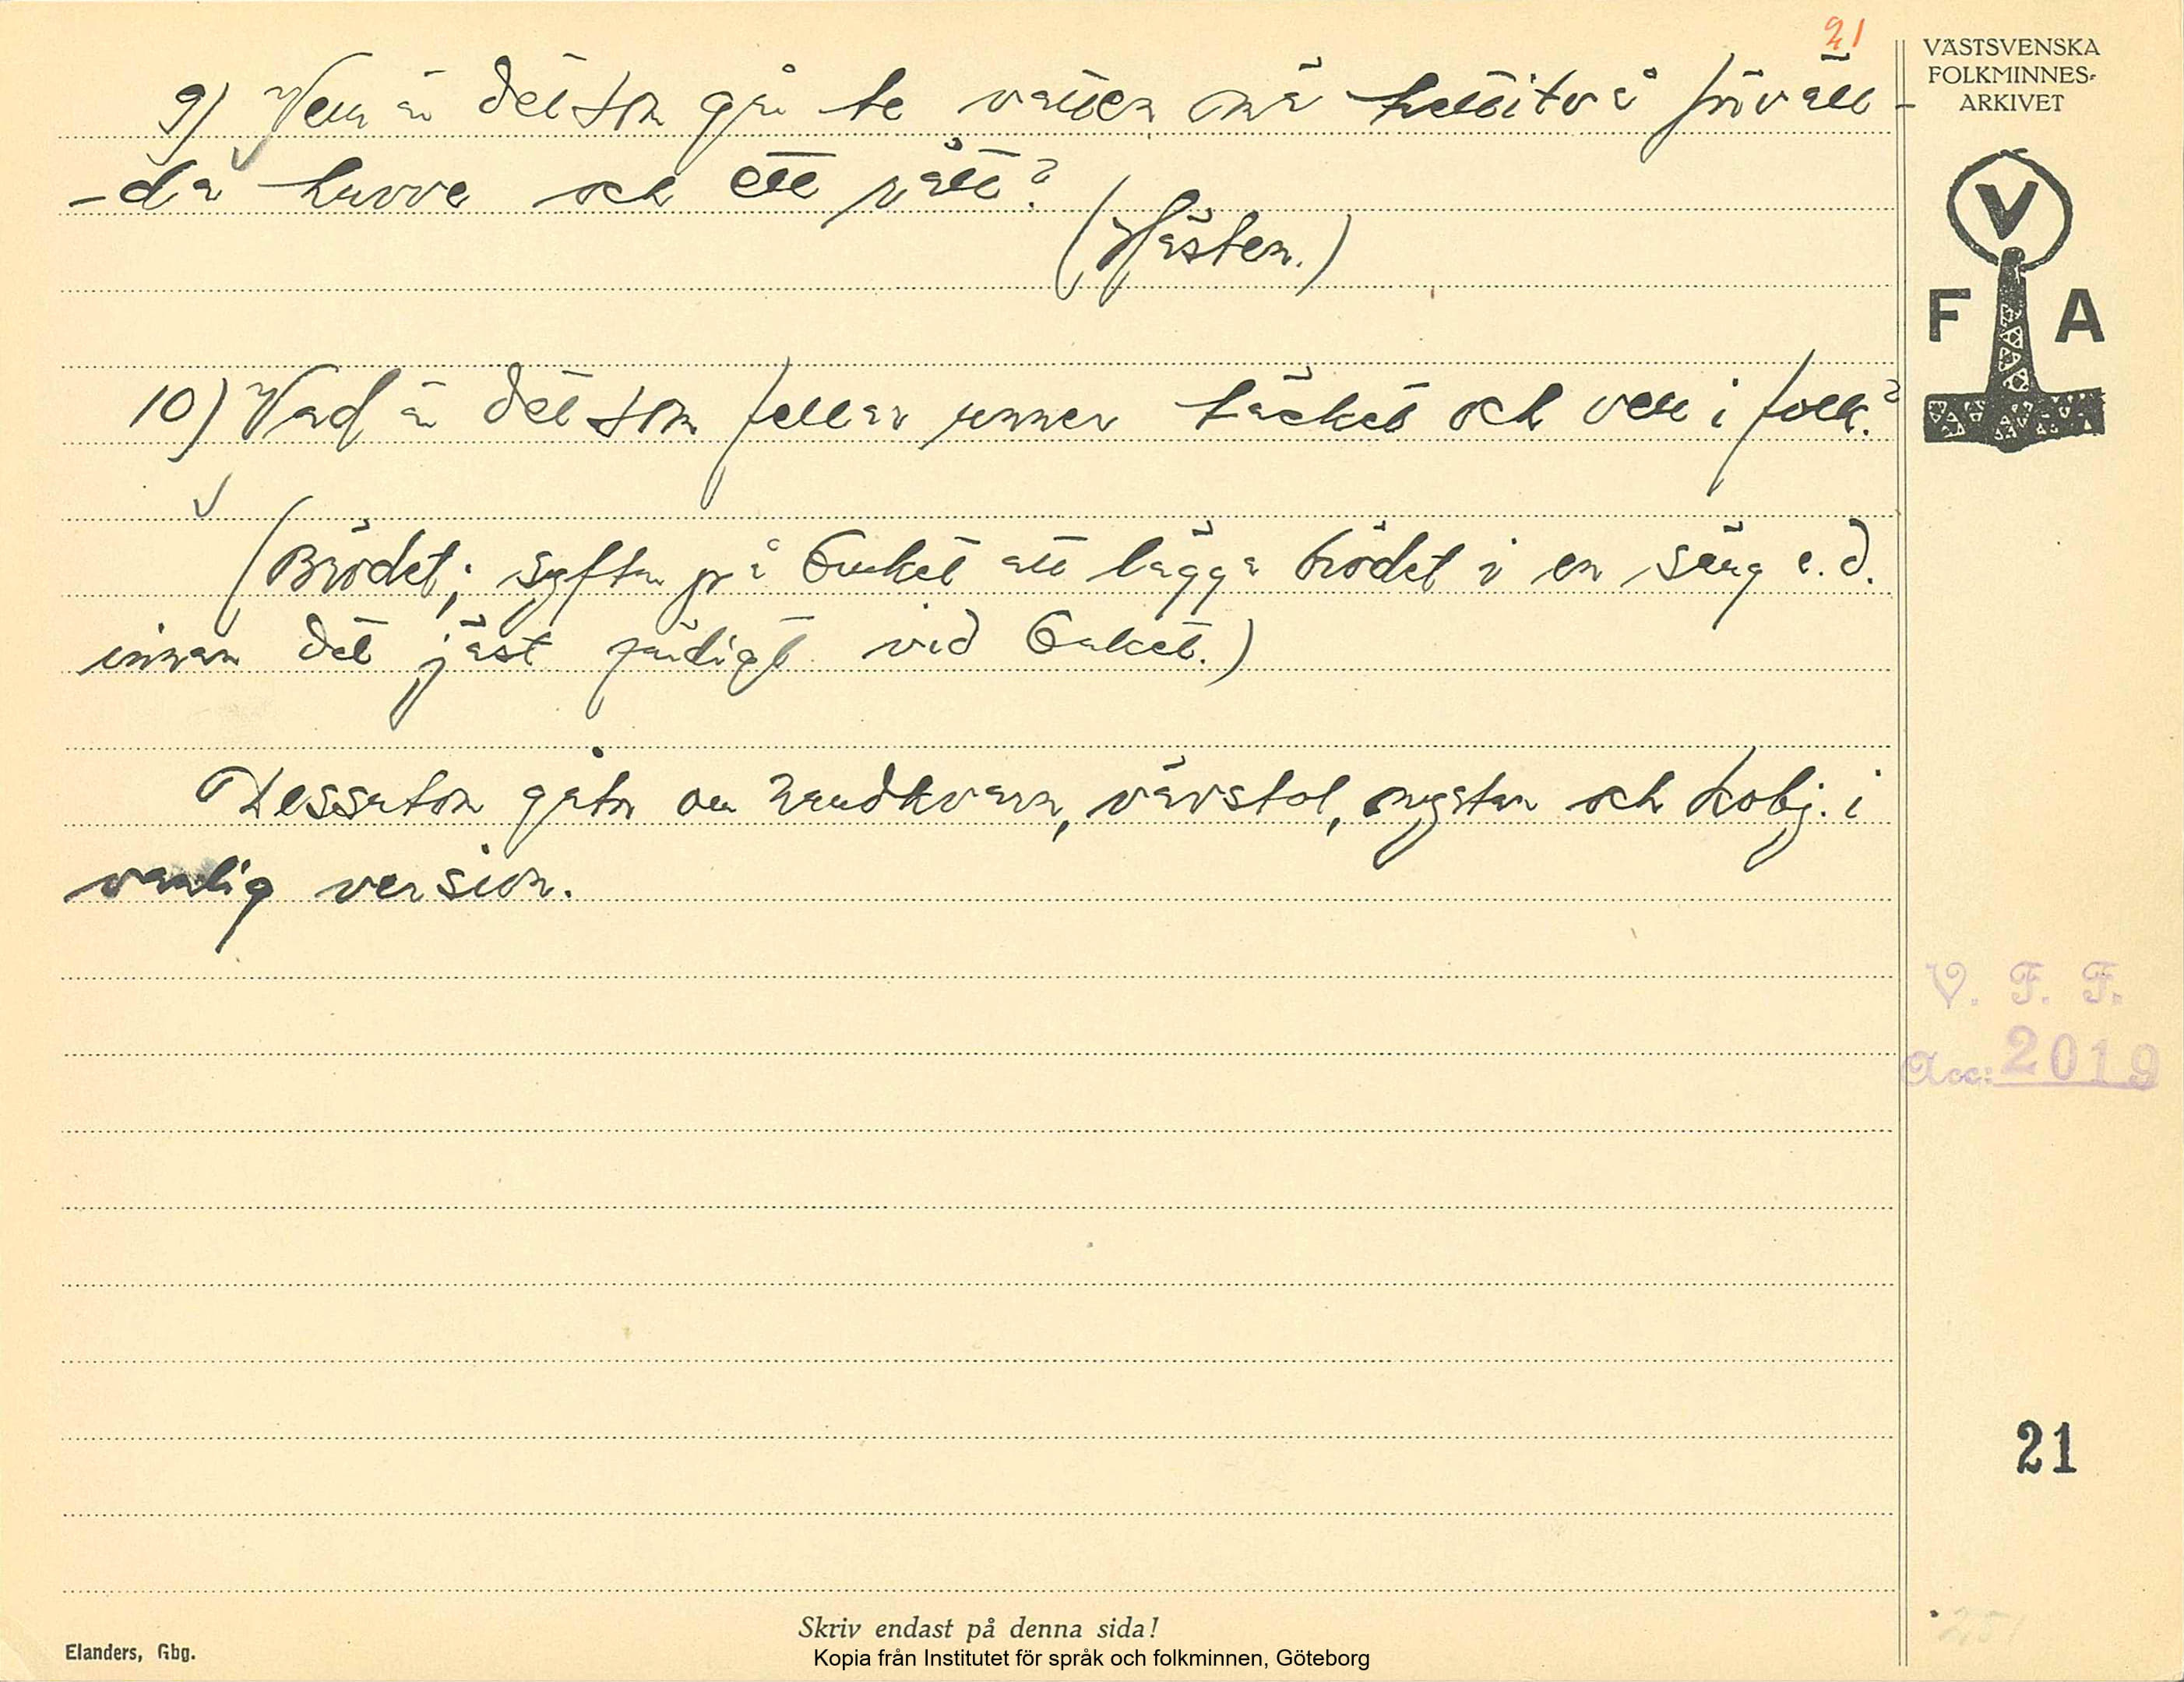 21
9) Vem ä det som går te vatten mä tettitvå förväll-
-da huvve och ett rätt?
(Hästen.)
10) Vad ä det som feller unner täcket och vell i folk?
(Brödet; syftar på bruket att lägga brödet i en säng e. d.
innan det jäst färdigt vid baket.)
Dessutom gåtor om handkvarn, vävstol, nystan och ko bj. i
vanlig version.
VÄSTSVENSKA
FOLKMINNES-
ARKIVET
V
F A
V. F. F.
Acc: 2019
21
Skriv endast på denna sida!
Elanders, Gbg.
Kopia från Institutet för språk och folkminnen, Göteborg